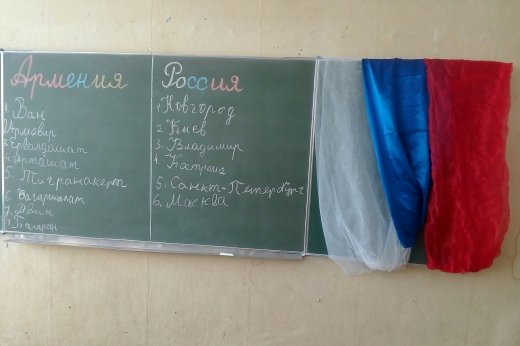 Армения
1. Ван
2 Армавир
3 Ервандашат
4. Арташат
5. Тигранакерт
6. Вагаршапат
7. Двин
8. Багаран
Россия
1. Новгород
2 Киев
3. Владимир
4 Кострома
5. Санкт-Петербург
6. Москва